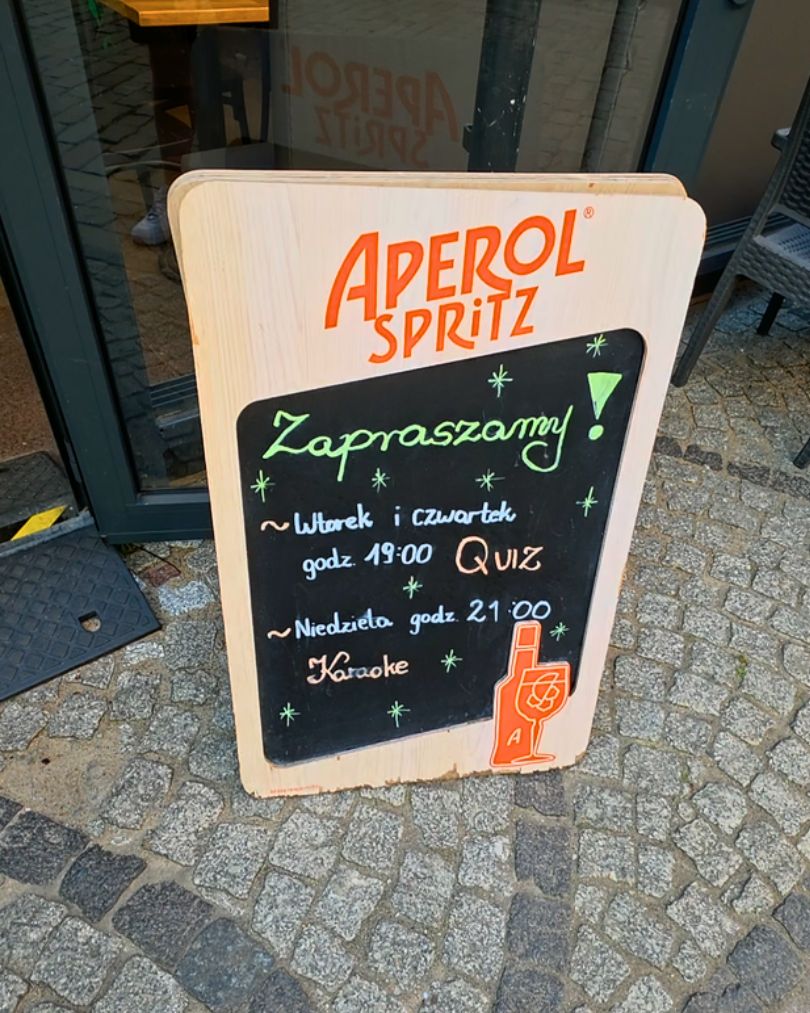 APEROL®
SPRiTZ
Zapraszamy!
~ Wtorek i czwartek
godz. 19:00 QUIZ
~ Niedziela godz. 21:00
Karaoke
A